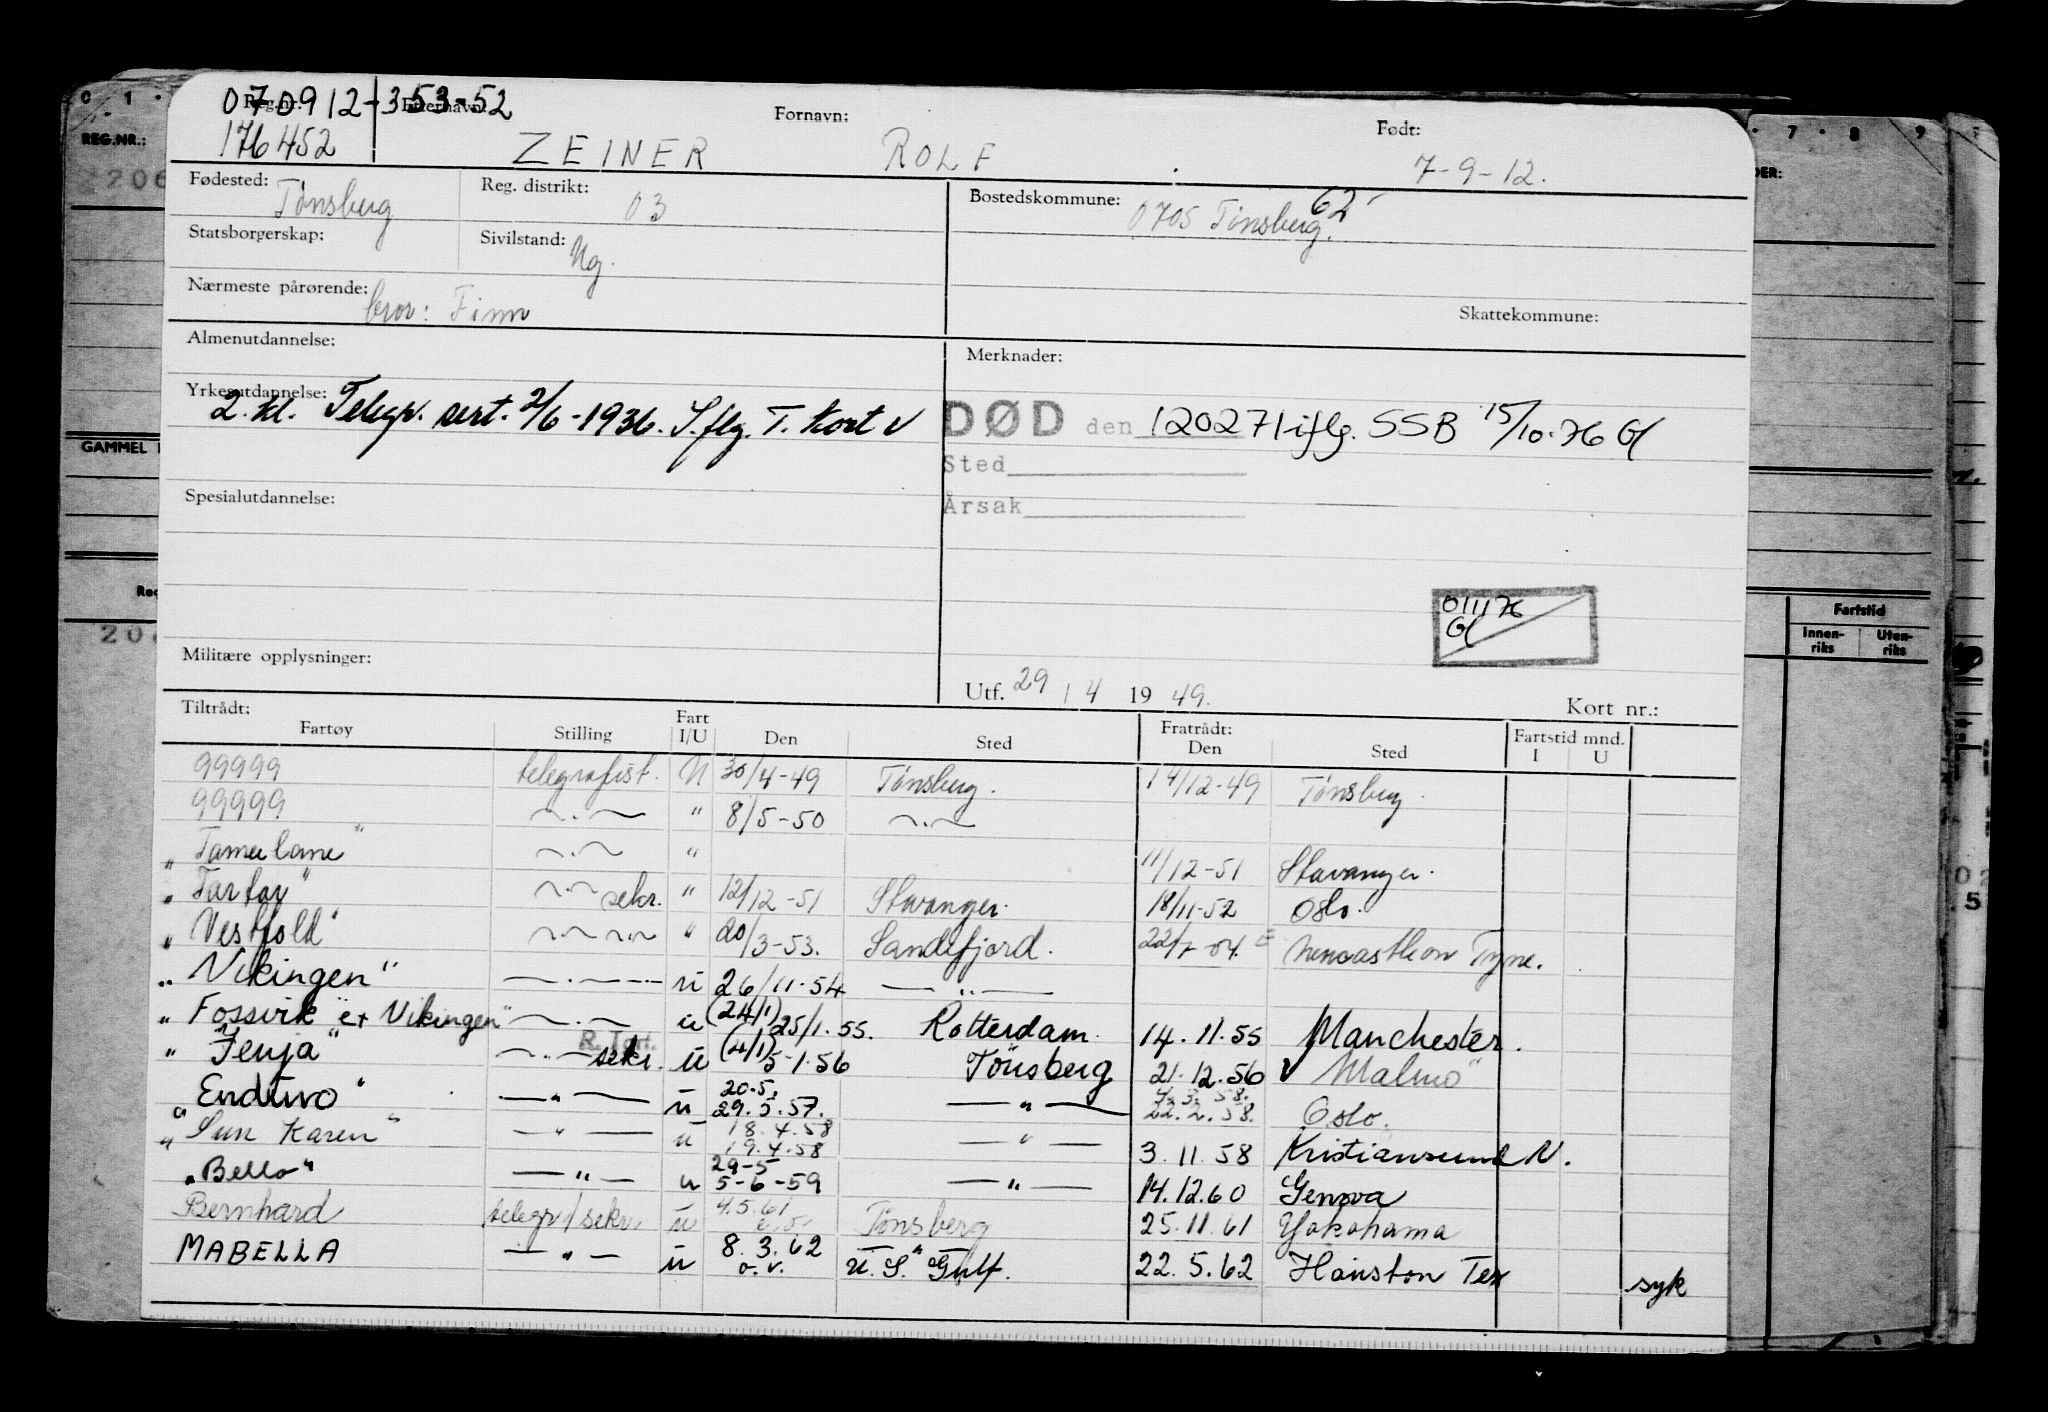 070912-353-52
Reg.nr. Etternavn: Fornavn: Født:
176452 ZEINER ROLF 7-9-12.
Fødested: Tønsberg Reg. distrikt: 03 Bostedskommune: 0705 Tønsberg. 62
Statsborgerskap: Sivilstand: Ug.
Nærmeste pårørende: bror: Finn Skattekommune:
Almenutdannelse: Merknader:
Yrkesutdannelse: 2. kl. Telegr. sert. 2/6-1936. I.flg. T. Kort
DØD den 120271 iflg. SSB 15/10.76 Gl
Sted
Årsak
Spesialutdannelse:
011176
Gl
Militære opplysninger:
Utf. 29 / 4 19 49. Kort nr.:
Tiltrådt: Fratrådt: Fartstid mnd.
Fartøy Stilling Fart I/U Den Sted Den Sted I U
99999 telegrafist. U 30/4-49 Tønsberg. 14/12-49 Tønsberg
99999 —.— " 8/5-50 —.—
"Tamerlane" —.— " 11/12-51 Stavanger.
"Tartar" —.— sekr. " 12/12-51 Stavanger. 18/11-52 Oslo.
"Vestfold" " 20/3-53. Sandefjord. Tyne.
"Vikingen" u 26/11-54 — " —
"Fossvik" ex Vikingen" —.— u (24/1) 25/1.55. Rotterdam. 14.11.55 Manchester.
"Fenja" — " — sekr. u (4/1) 5-1.56 Tönsberg 21.12.56 Malmö
"Enduro" — " — u 20.5. 29.5.57. — " — 22.2.58. Oslo.
"Sun Karen" — " — u 18.4.58 19.4.58 — " — 3.11.58 Kristiansund N.
"Bello" — " — u 29-5 5-6-59 — " — 14.12.60 Genova
Bernhard telegr/sekr. u 4.5.61 Tønsberg 25.11.61 Yokohama
MABELLA — " — u 8.3.62 o.v. U.S. Gulf. 22.5.62 Houston Tex syk
0 1 7 8 9
REG.NR.:
206
GAMMEL
Fartstid
Innen-riks Uten-riks
5